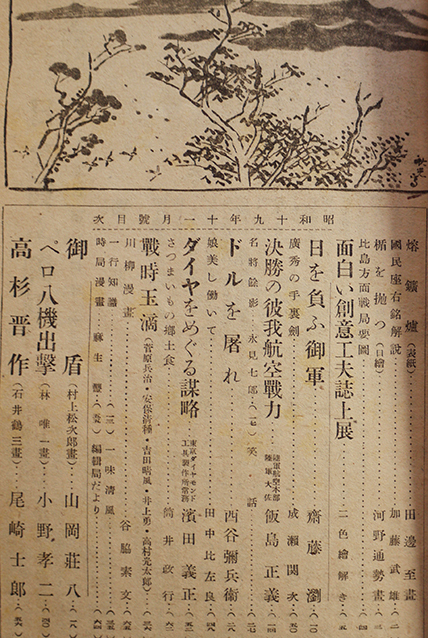 昭和十九年十一月號目次
熔鑛爐(表紙) 田邊至畫
國民座右銘解說 加藤武雄
楯を拋つ(口繪) 河野通勢畫
比島方面戰局要圖
面白い創意工夫誌上展 二色繪解き
日を負ふ御軍 齋藤瀏
廣秀の手裏劍 成瀨關次
決勝の彼我航空戰力 陸軍航空本部 陸軍 飯島正義
名將餘影 永見七郎 笑話
ドルを屠れ 西谷彌兵衞
娘美し働いて 田中比左良
ダイヤをめぐる謀略 東京ダイヤモンド工具製作所常務 濱田義正
さつまいもの鄕土食 筒井政行
戰時玉滴(菅原兵治・安保淸種・吉田晴風・井上勇・高村光太郎)
川柳漫畫 谷脇素文
一行知識 一味淸風
時局漫畫 麻生豐 編輯局だより
御盾(村上松次郎畫) 山岡莊八
ベロ八機出擊(林唯一畫) 小野孝二
高杉晋作(石井鶴三畫) 尾崎士郎